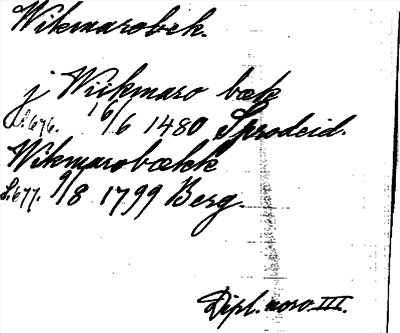 Wikmarobek.
j Wiikmaro bæk
S. 676. 16/6 1480 Sprodeid.
Wikmarobækk
S. 677. 9/8 1799 Berg.
Dipl. norv. III.